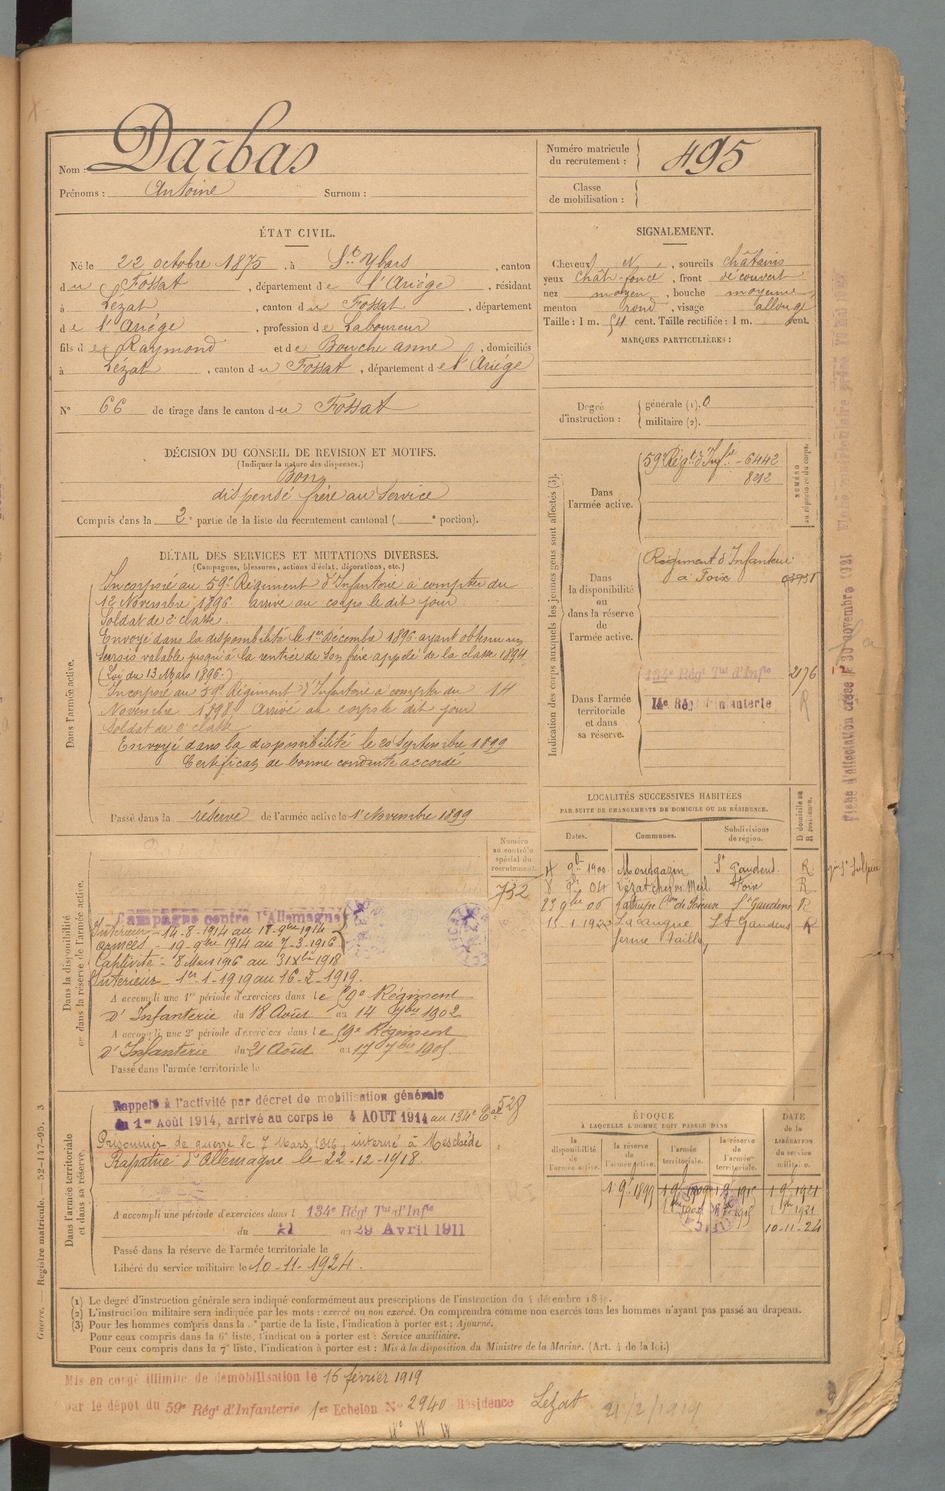 Nom : Darbas
Prénoms : Antoine Surnom :
Numéro matricule
du recrutement : 495
Classe
de mobilisation :
ÉTAT CIVIL.
Né le 22 octobre 1875, à St Ybars, canton
du Fossat, département de l'Ariège, résidant
à Lézat, canton du Fossat, département
de l'Ariége, profession de Laboureur
fils de Raymond et de Bouche anne, domiciliés
à Lézat, canton du Fossat, département de l'Ariége
N° 66 de tirage dans le canton du Fossat
SIGNALEMENT.
Cheveux N, sourcils châtains
yeux chât foncé, front découvert
nez moyen, bouche moyenne
menton rond, visage allongé
Taille : 1 m. 54 cent. Taille rectifiée : 1 m. cent.
MARQUES PARTICULIÈRES :
Degré
d'instruction :
générale (1). 0
militaire (2).
DÉCISION DU CONSEIL DE REVISION ET MOTIFS.
(Indiquer la nature des dispenses.)
Bon
dispensé frère au service
Compris dans la 2e partie de la liste du recrutement cantonal ( e portion).
DÉTAIL DES SERVICES ET MUTATIONS DIVERSES.
(Campagnes, blessures, actions d'éclat, décorations, etc.)
Dans l'armée active.
Incorporé au 59e Régiment d'Infanterie à compter du
12 Novembre 1896 arrivé au corps le dit jour
Soldat de 2e classe.
Envoyé dans la disponibilité le 1er Décembre 1896 ayant obtenu un
sursis valable jusqu'à la rentrée de son frère appelé de la classe 1894
(Loi du 13 Mars 1896.)
Incorporé au 59e Régiment d'Infanterie à compter du 14
Novembre 1898. Arrivé au corps le dit jour
Soldat de 2e classe
Envoyé dans la disponibilité le 20 Septembre 1899
Certificat de bonne conduite accordé
Passé dans la réserve de l'armée active le 1er Novembre 1899
Indication des corps auxquels les jeunes gens sont affectés (3).
NUMÉRO
au répertoire du corps.
Dans
l'armée active.
59e Régt d'Infie - 6442
8212
Dans
la disponibilité
ou
dans la réserve
de
l'armée active.
Régiment d'Infanterie
à Foix
Dans l'armée
territoriale
et dans
sa réserve.
134e Régt Tal d'Infie 2176
14e Régt d'Infanterie R
LOCALITÉS SUCCESSIVES HABITÉES
PAR SUITE DE CHANGEMENTS DE DOMICILE OU DE RÉSIDENCE.
Dates. Communes. Subdivisions
de région. D domicile ou
R résidence.
1900 Montgazin St Gaudens R
8 04 Lézat Foix R
23 9bre 06 St Gaudens R
15-1-1920 Lacaugne St Gaudens R
ferme
Dans la disponibilité
ou dans la réserve de l'armée active.
Numéro
au contrôle
spécial du
recrutement.
732
Campagne contre l'Allemagne
Intérieur - 14-8-1914 au 18-9bre 1914
armées - 19-9bre 1914 au 7-3-1916
Captivité - 8 Mars 1916 au 31 Xbre 1918
Intérieur - 1er-1-1919 au 16-2-1919
A accompli une 1re période d'exercices dans le 59e Régiment
d'Infanterie du 18 Août au 14 7bre 1902
A accompli une 2e période d'exercices dans le 59e Régiment
d'Infanterie du 21 Août au 17 7bre 1905
Passé dans l'armée territoriale le
Dans l'armée territoriale
et dans sa réserve.
Rappelé à l'activité par décret de mobilisation générale
du 1er Août 1914, arrivé au corps le 4 AOUT 1914 au 134e 528
Prisonnier de guerre le 7 Mars 1916, interné à Meschède
Rapatrié d'Allemagne le 22-12-1918
A accompli une période d'exercices dans l 134e Régt Tal d'Infie
du 21 au 29 Avril 1911
Passé dans la réserve de l'armée territoriale le
Libéré du service militaire le 10-11-1924.
ÉPOQUE
À LAQUELLE L'HOMME DOIT PASSER DANS
DATE
DE LA
LIBÉRATION
du service
militaire.
la
disponibilité
de
l'armée active.
la réserve
de
l'armée active.
l'armée
territoriale.
la réserve
de
l'armée
territoriale.
1 9bre 1899
10-11-24
(1) Le degré d'instruction générale sera indiqué conformément aux prescriptions de l'instruction du 4 décembre 1889.
(2) L'instruction militaire sera indiquée par les mots : exercé ou non exercé. On comprendra comme non exercés tous les hommes n'ayant pas passé au drapeau.
(3) Pour les hommes compris dans la partie de la liste, l'indication à porter est : Ajourné.
Pour ceux compris dans la 6e liste, l'indication à porter est : Service auxiliaire.
Pour ceux compris dans la 7e liste, l'indication à porter est : Mis à la disposition du Ministre de la Marine. (Art. 4 de la loi.)
Guerre. — Registre matricule. 52-147-95. 3
Mis en congé illimité de démobilisation le 16 février 1919
par le dépôt du 59e Régt d'Infanterie 1er Echelon N° 2940 Résidence Lezat 21/2/1919